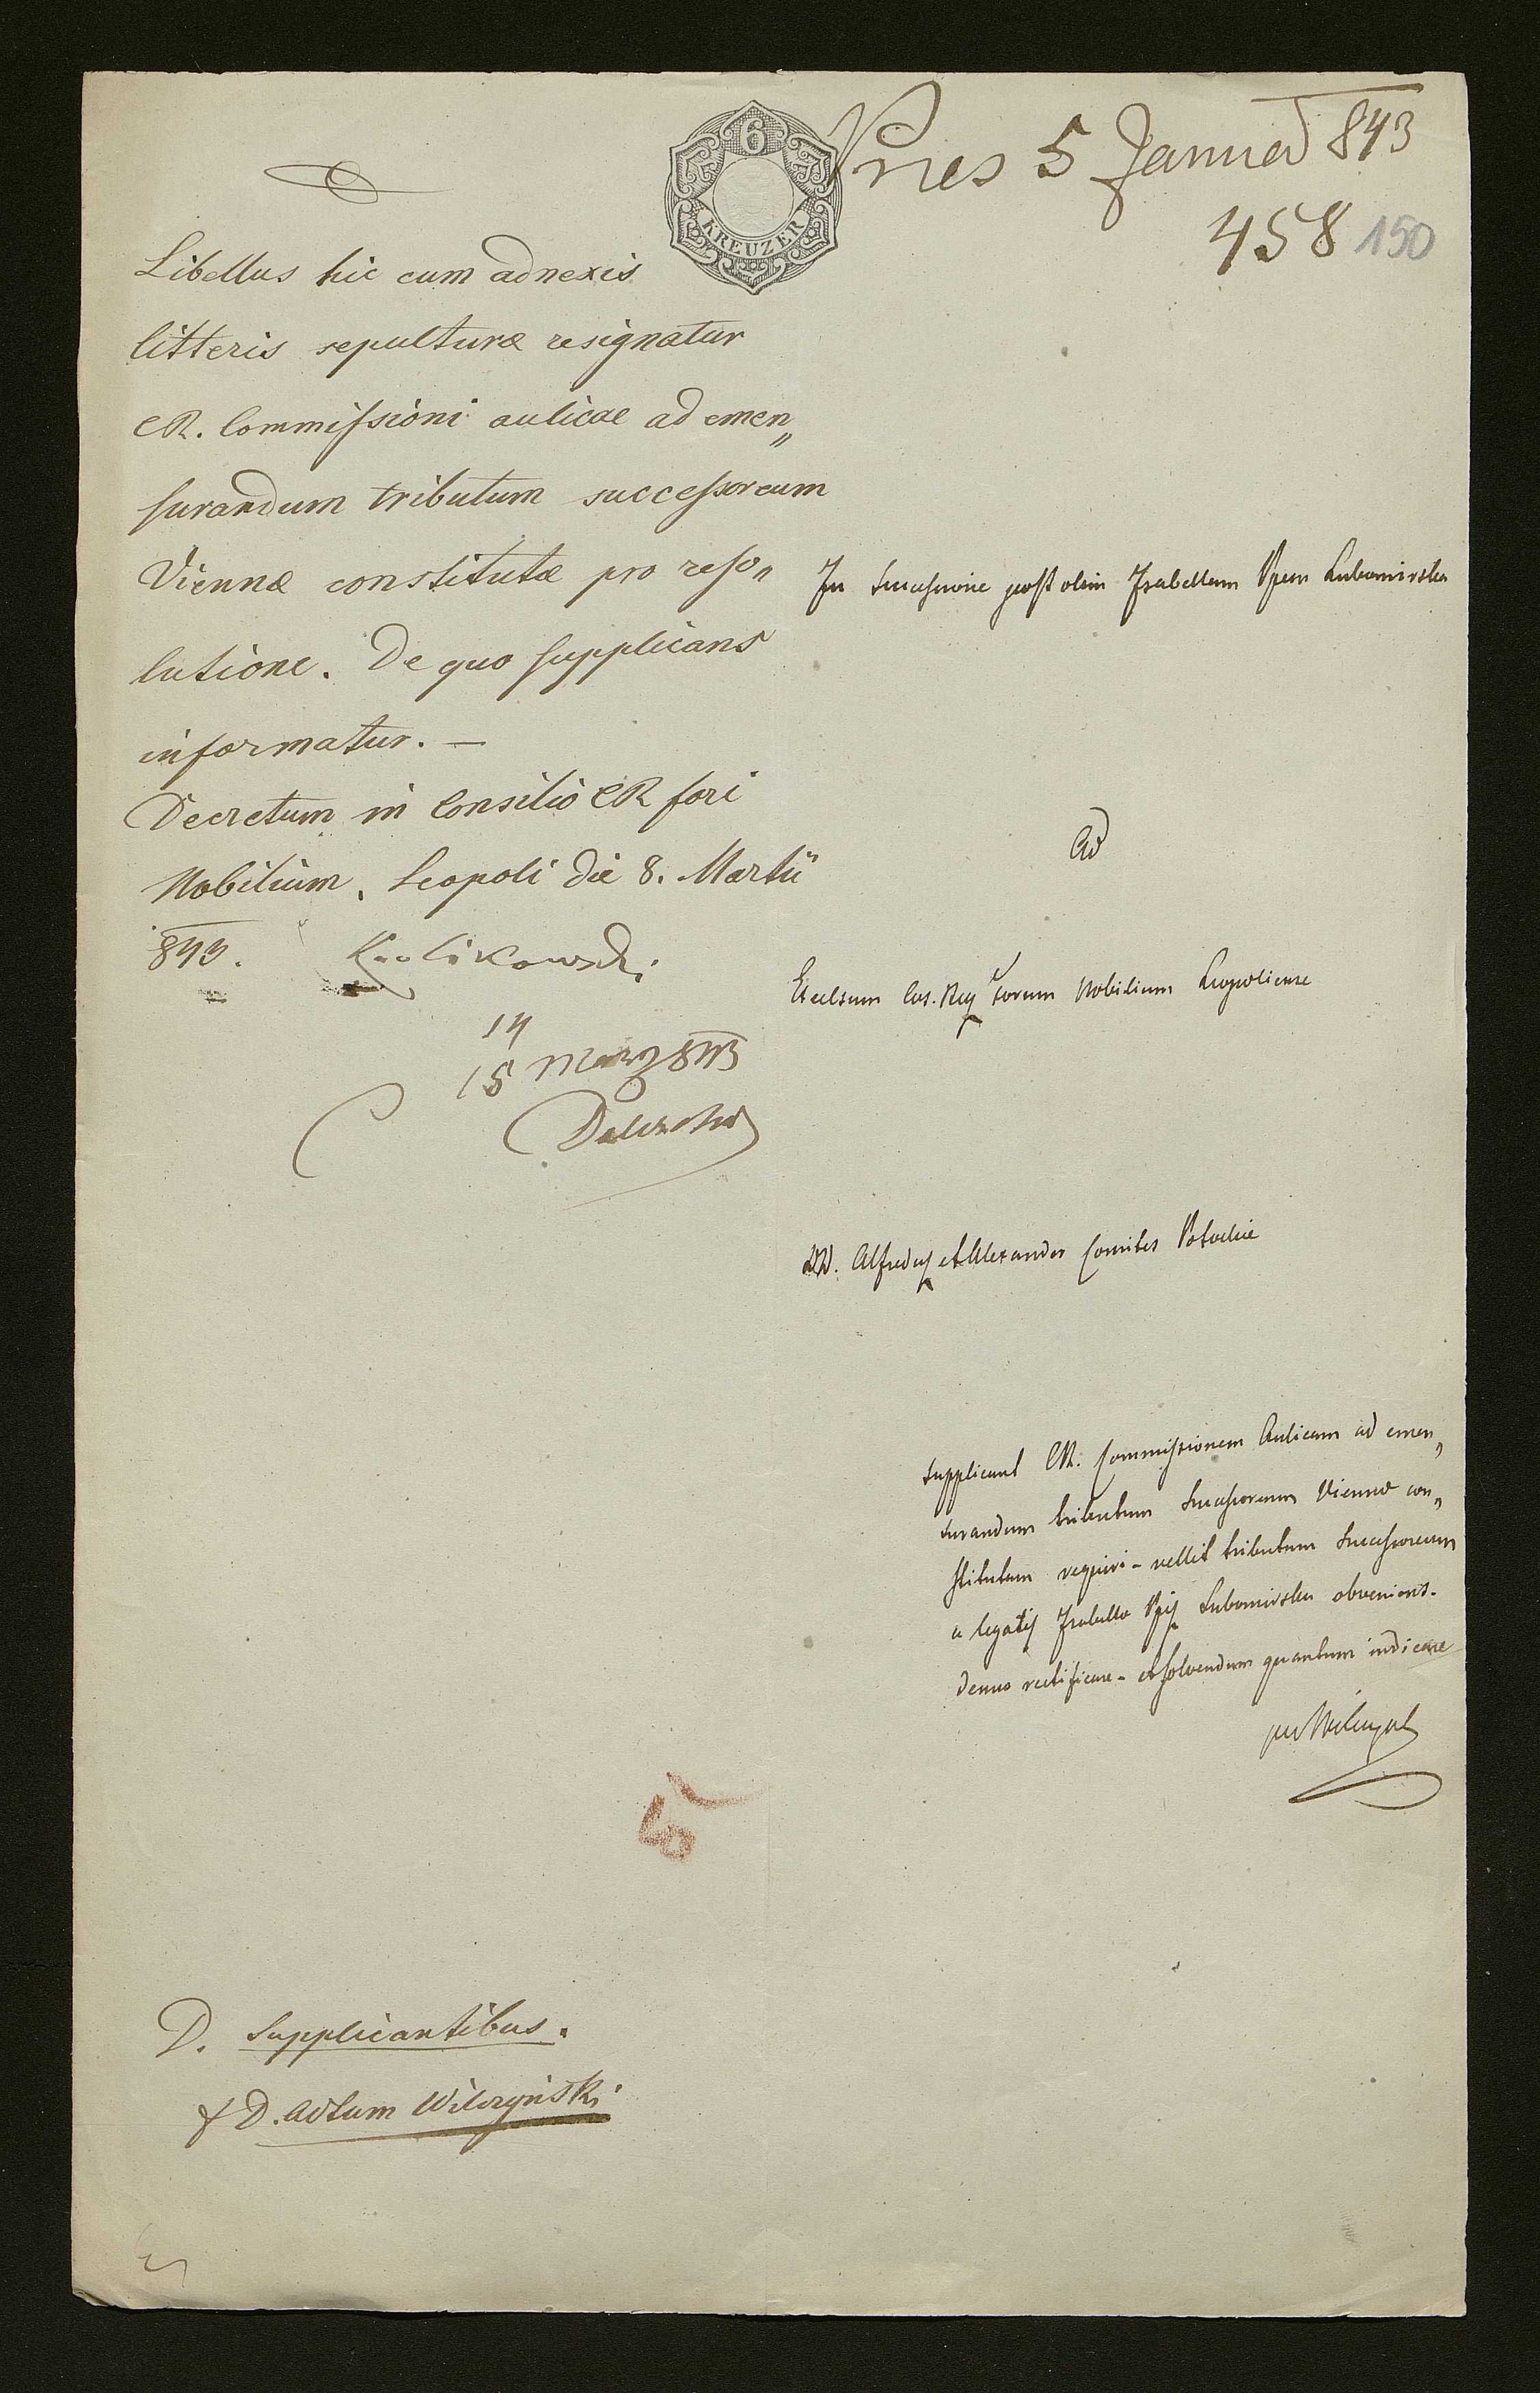 6
KREUZER
Pnes 5 Januar 843
458 150
Libellus hic cum adnexis
litteris sepulturæ resignatur
CR. Commissioni aulicae ad emen„
surandum tributum successoreum
Viennæ constitutæ pro reso„
lutione. De quo supplicans
informatur. —
Decretum in Consilio CR fori
Nobilium. Leopoli die 8. Martii
843. Krolikowski
14
15 März 843
In Successione post olim Isabellam Ppem Lubomirska
Ad
Excelsum Cas. Reg forum Nobilium Leopoliense
DD. Alfredus et Alexander Comites Potockie
Supplicant CR. Commissionem Aulicam ad emen„
surandum tributum Successoreum Viennæ con„
stitutam requiri - vellit tributum Successoreum
a legatis Isabellæ Ppis Lubomirska obveniens.
denuo rectificare - et solvendum quantum indicare
5
D. Supplicantibus.
& D. Adtum Wilczyński